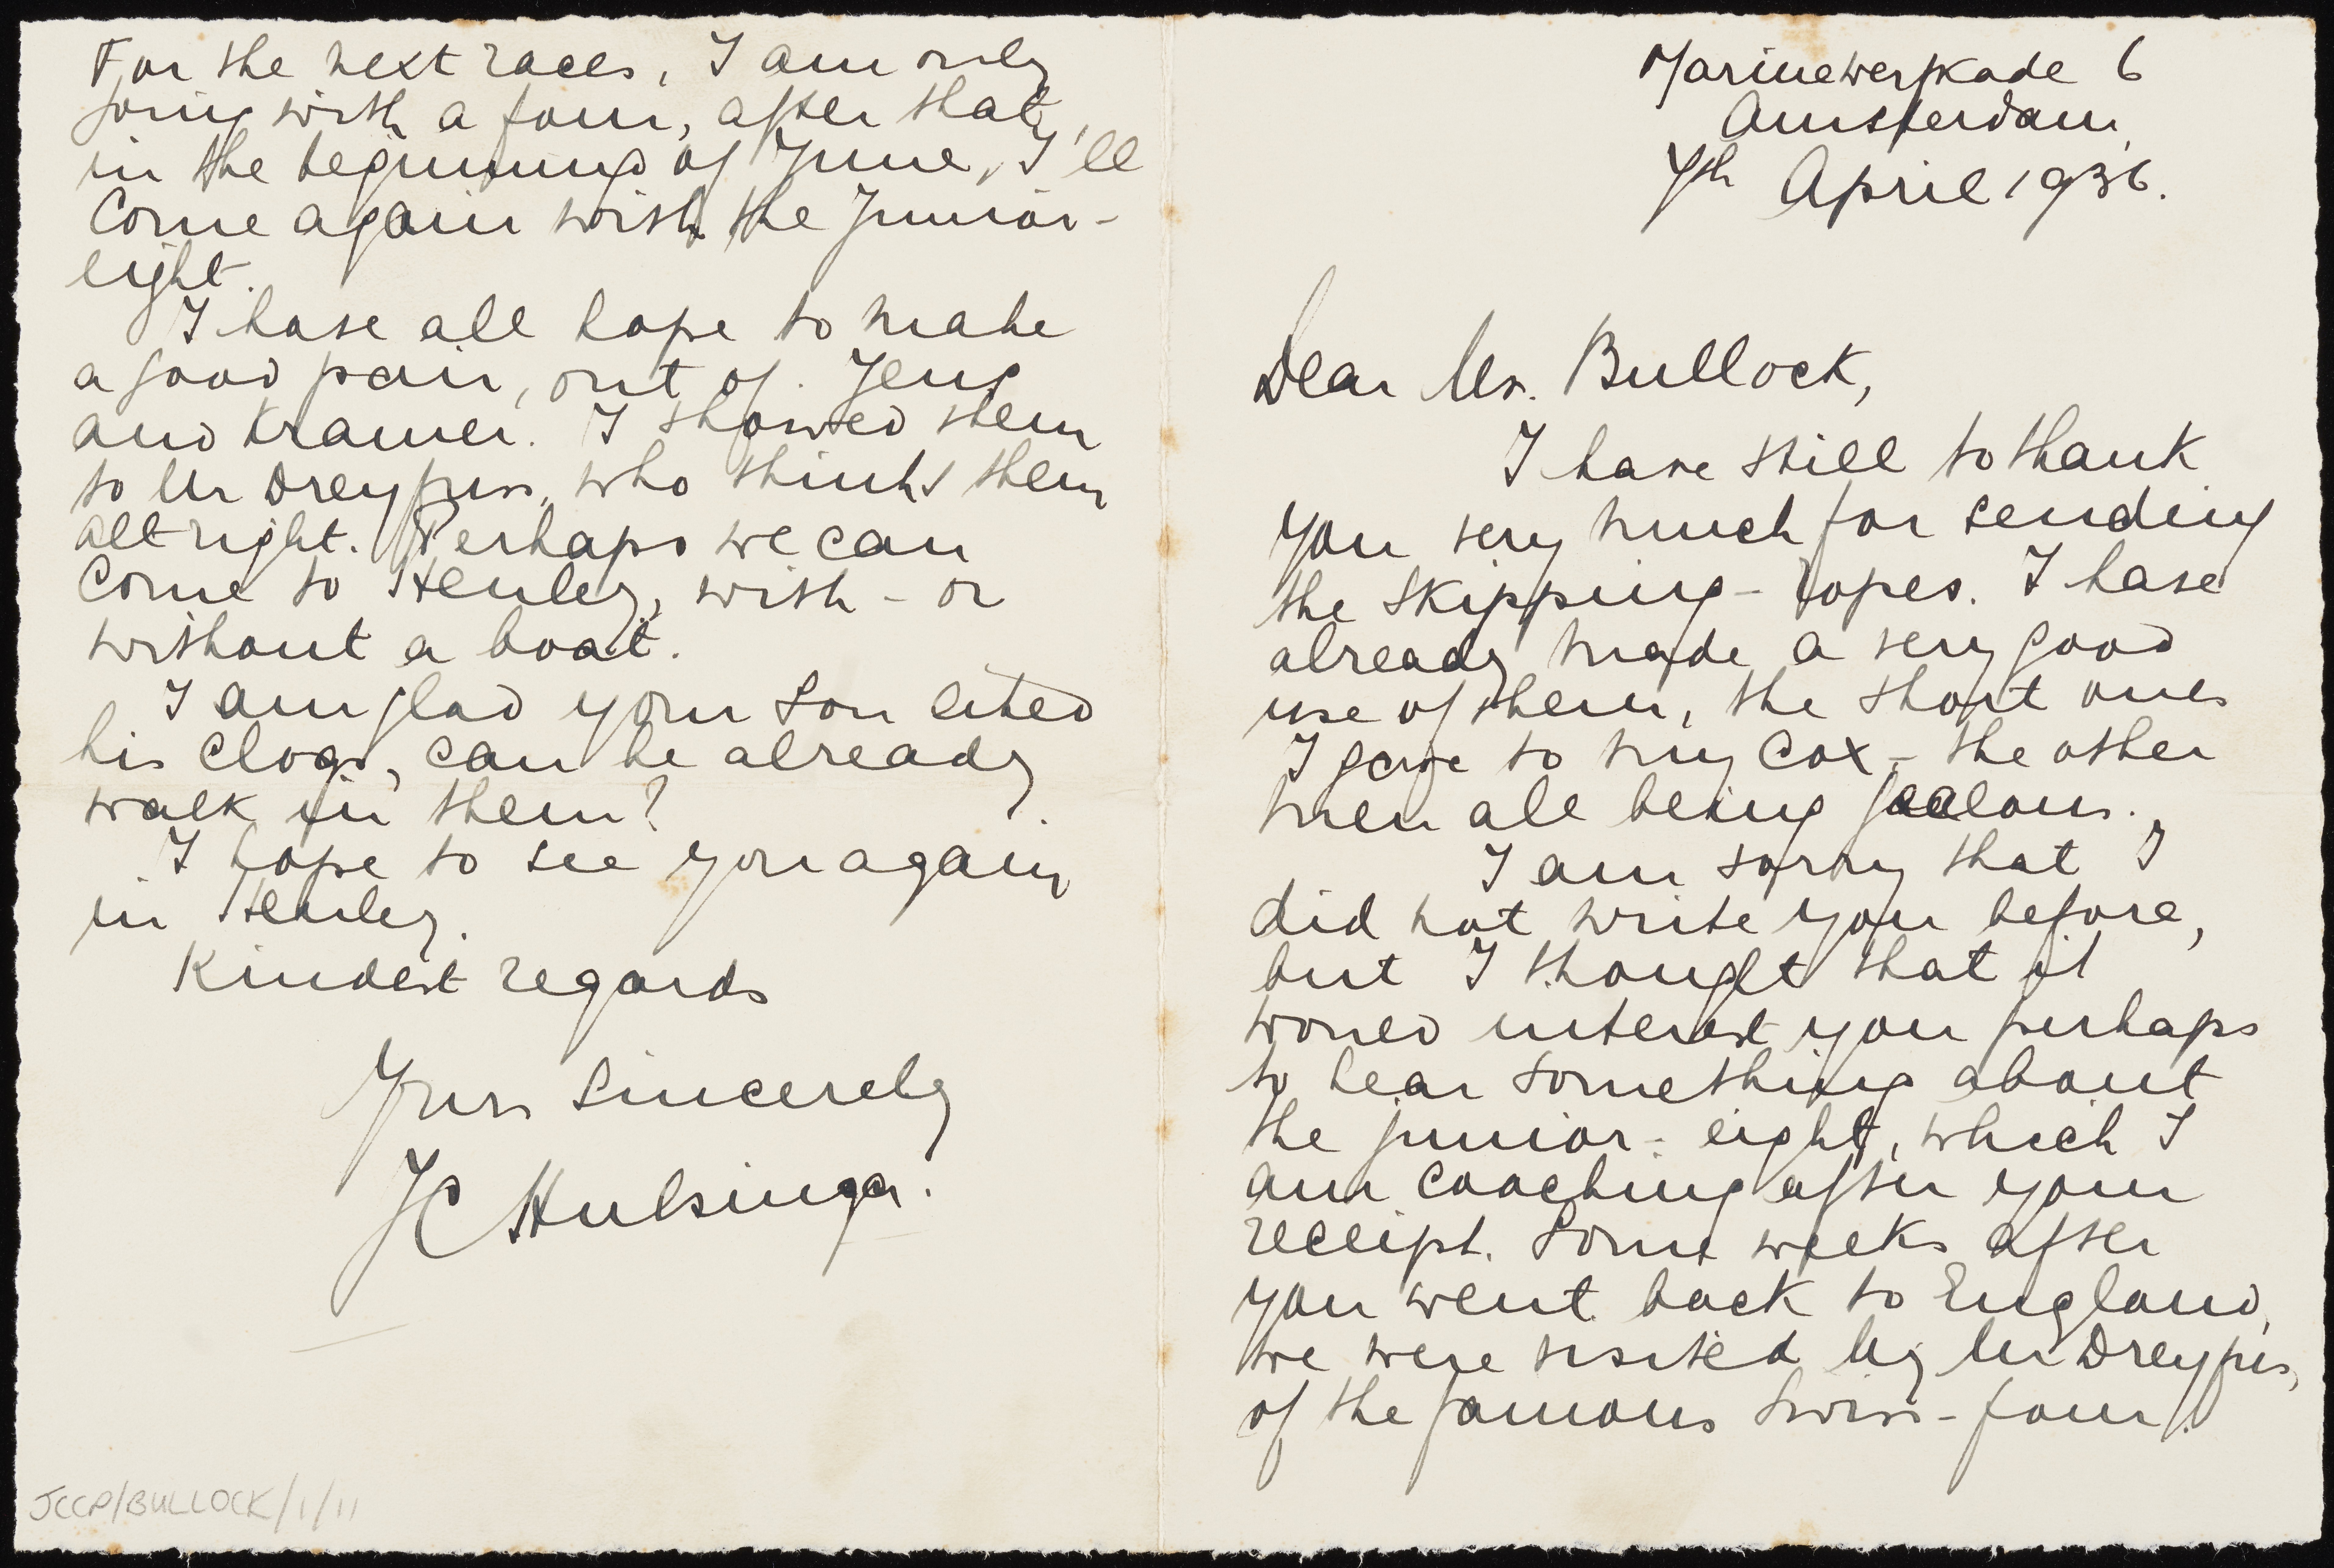 Marinewerfkade 6
Amsterdam,
7th April 1936.
Dear Mr. Bullock,
I have still to thank
you very much for sending
the skipping-ropes. I have
already made a very good
use of them, the short ones
I gave to my cox - the other
men all being jealous.
I am sorry that I
did not write you before,
but I thought that it
would interest you perhaps
to hear something about
the junior-eight, which I
am coaching after your
receipt. Some weeks after
you went back to England,
we were visited by Mr Dreyfus,
of the famous Swiss-four.
For the next races, I am only
going with a four, after that,
in the beginning of June, I'll
come again with the Junior-
eight.
I have all hope to make
a good pair, out of Jeng
and Kramer. I showed them
to Mr Dreyfuss, who thinks them
all right. Perhaps we can
come to Henley, with - or
without a boat.
I am glad your son liked
his clogs, can he already
walk in them?
I hope to see you again
in Henley.
Kindest regards
Yurs sincerely
JC Hulsinga.
JCCP/BULLOCK/1/11